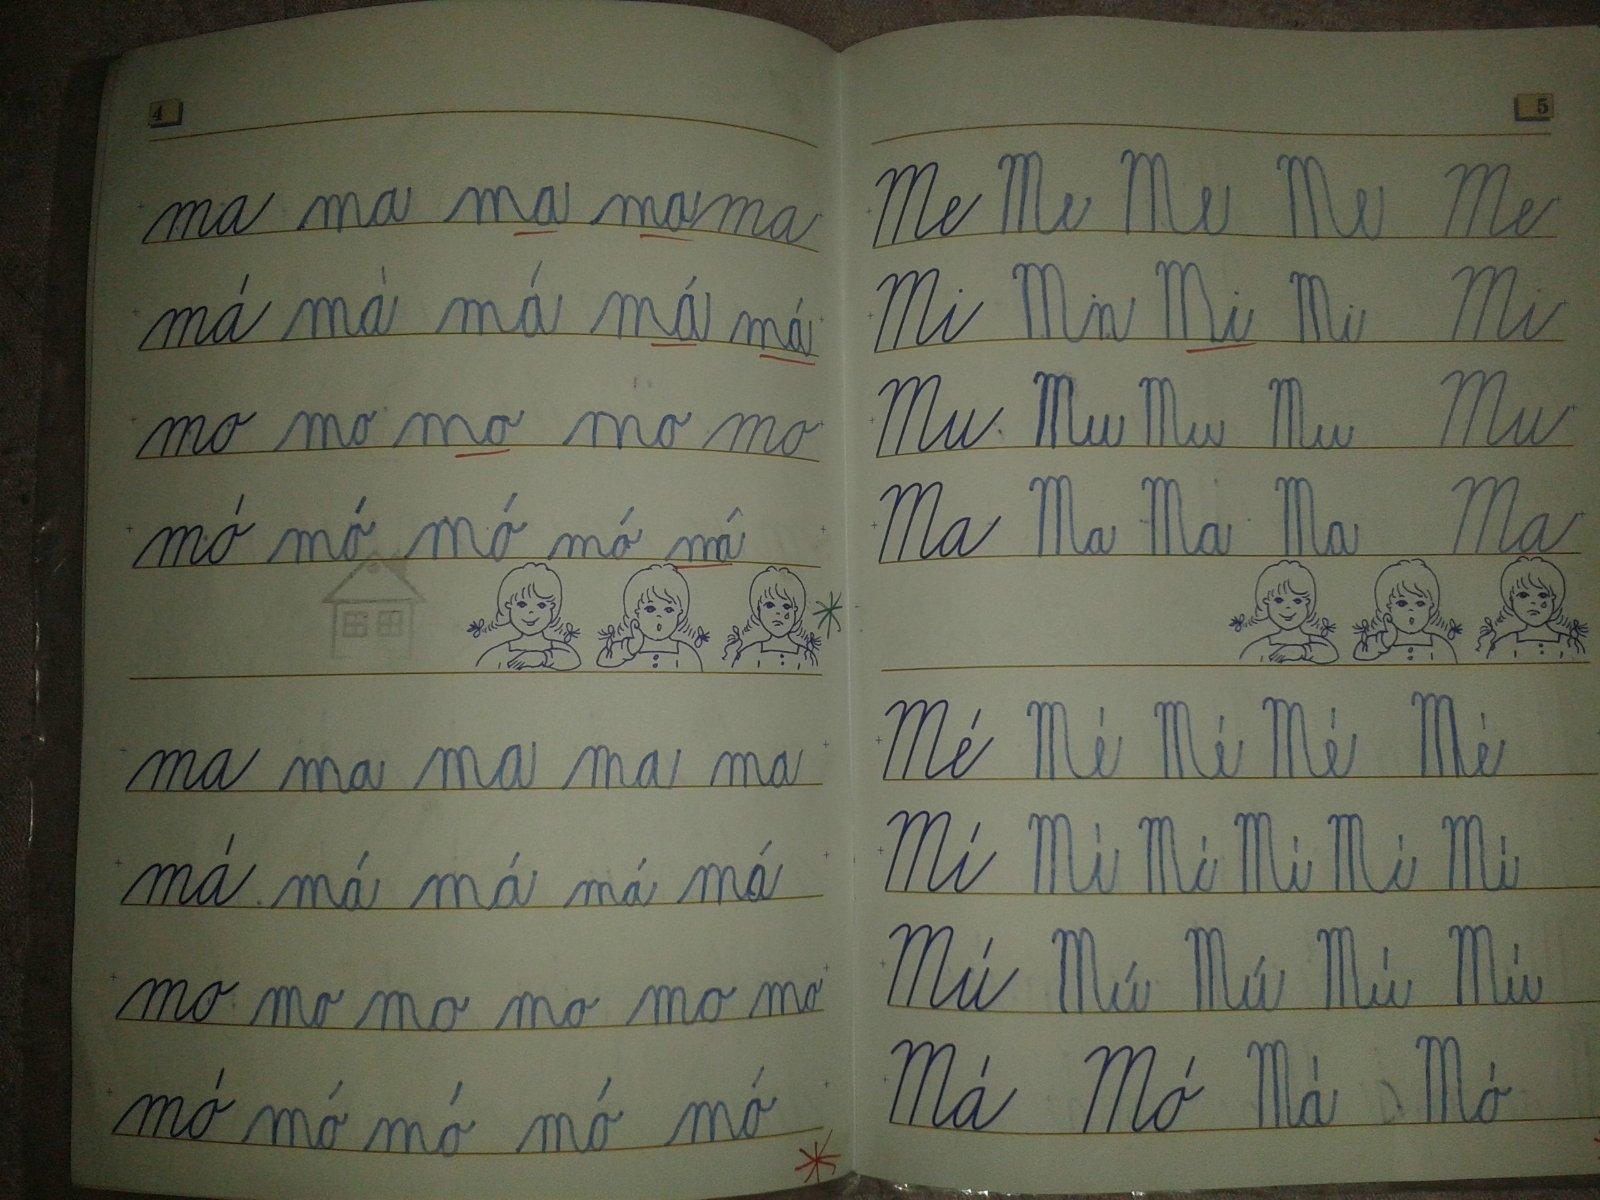 4
ma ma ma ma ma
má má má má má
mo mo mo mo mo
mó mó mó mó má
ma ma ma ma ma
má má má má má
mo mo mo mo mo mo
mó mó mó mó mó
5
Me Me Me Me Me
Mi Mi Mi Mi
Mu Mu Mu Mu Mu
Ma Ma Ma Ma Ma
Mé Mé Mé Mé Mé
Mí Mí Mí Mí Mí Mí
Mú Mú Mú Mú Mú
Má Mó Má Mó